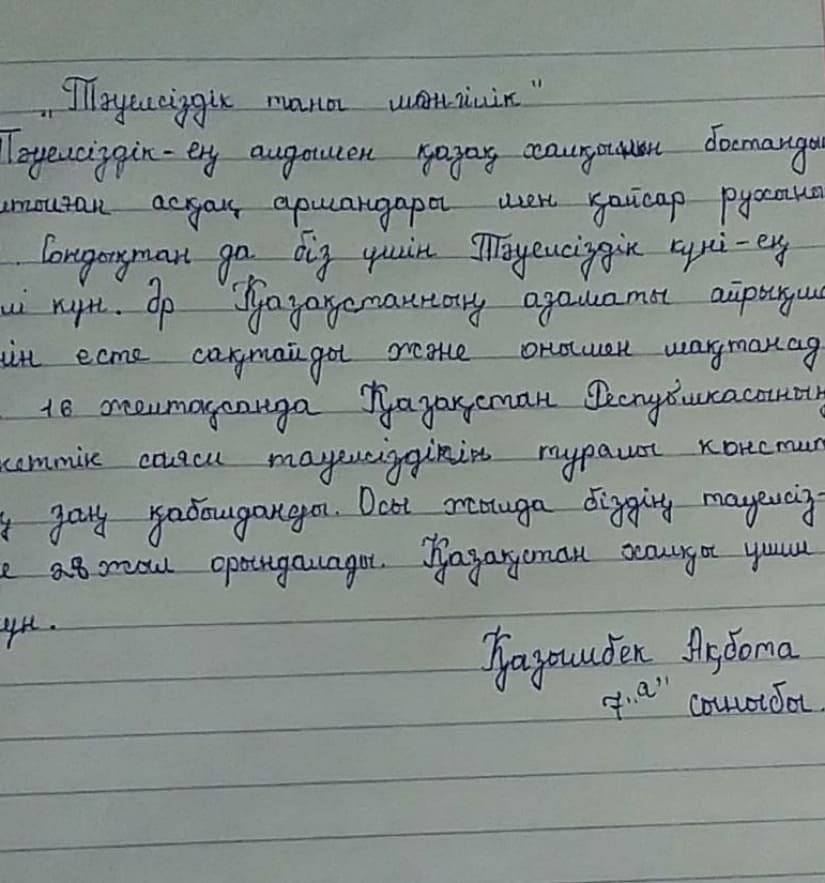 „Тәуелсіздік таңы мәңгілік"
Тәуелсіздік-ең алдымен қазақ халқының бостанды
асқақ армандары мен қайсар рухына
. Сондықтан да біз үшін Тәуелсіздік күні-ең
күн. Әр Қазақстанның азаматы айрықша
есте сақтайды және онымен мақтанад
. 16 желтоқсанда Қазақстан Республикасының
саяси тәуелсіздігін туралы консти
заң қабылданды. Осы жылда біздің тәуелсіз-
е 28 жыл орындалады. Қазақстан халқы үшін
үн.
Қазымбек Ақбота
7„а" сыныбы.